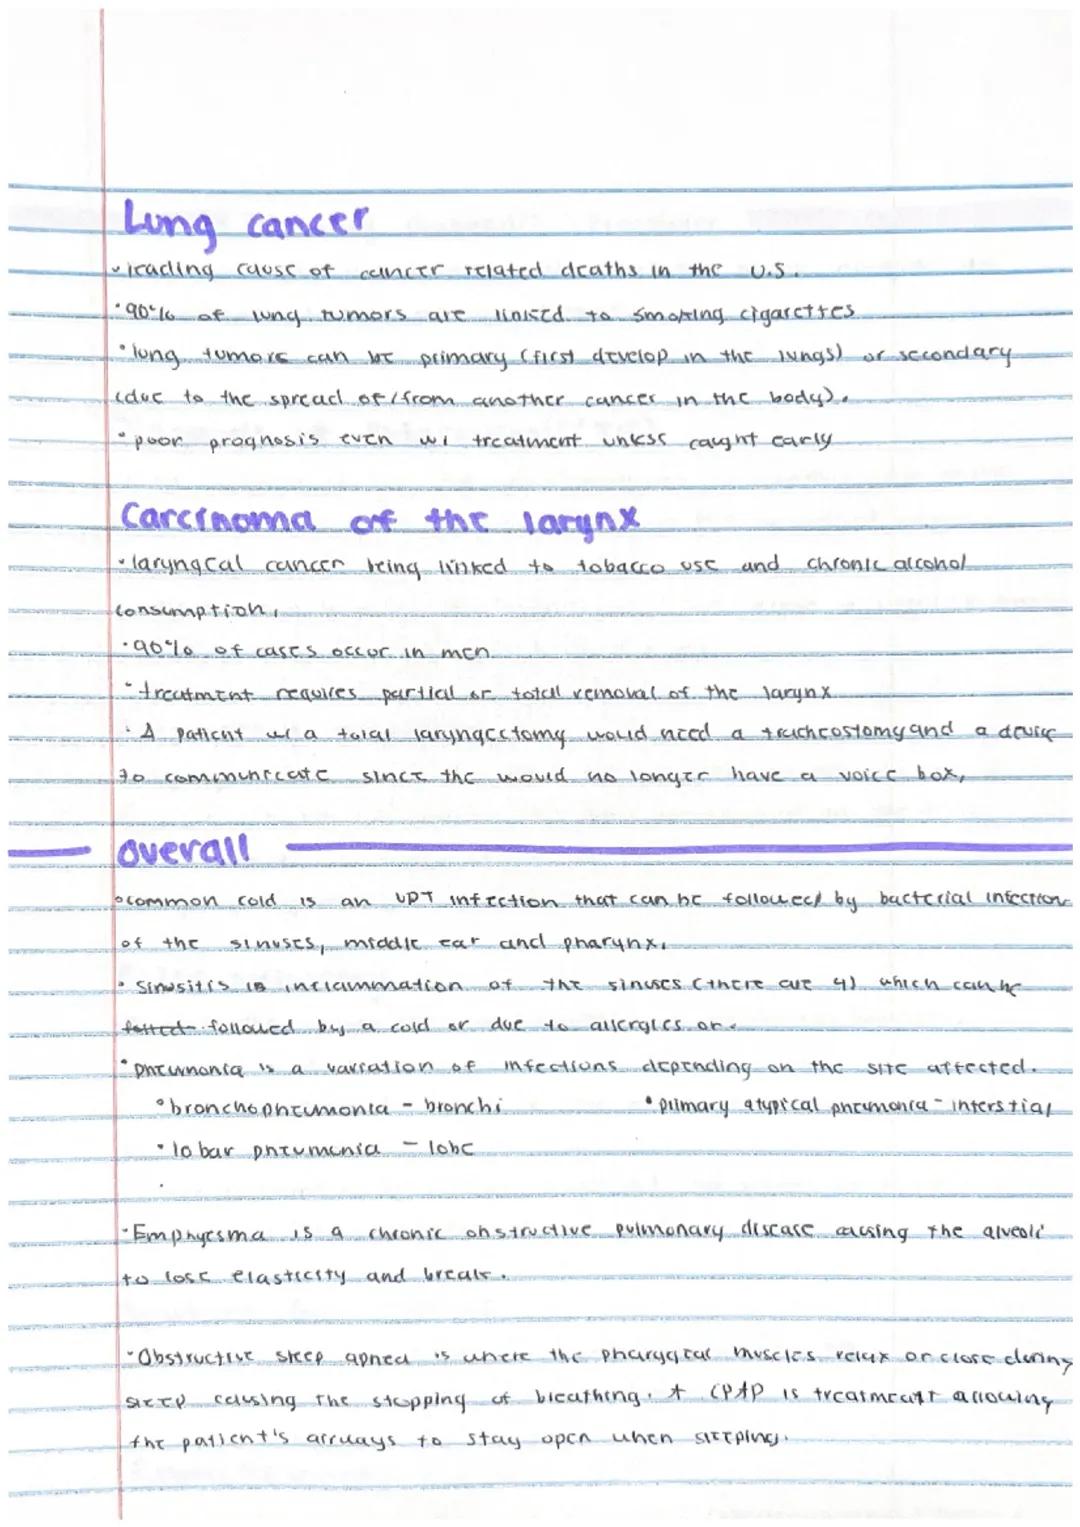 Lung cancer
• leading cause of cancer related deaths in the U.S.
• 90% of lung tumors are linked to smoking cigarettes
• lung tumors can be primary (first develop in the lungs) or secondary
(due to the spread of/from another cancer in the body).
• poor prognosis even w/ treatment unless caught early
Carcinoma of the larynx
• laryngeal cancer being linked to tobacco use and chronic alcohol
consumption.
• 90% of cases occur in men
• treatment requires partial or total removal of the larynx
• A patient w/ a total laryngectomy would need a tracheostomy and a device
to communicate since the would no longer have a voice box,
overall
• common cold is an UPT infection that can be followed by bacterial infection
of the sinuses, middle ear and pharynx.
• Sinusitis is inflammation of the sinuses (there are 4) which can be
followed by a cold or due to allergies or.
• pneumonia is a variation of infections depending on the site affected.
• bronchopneumonia - bronchi • primary atypical pneumonia - interstial
• lobar pneumonia - lobe
• Emphyesma is a chronic obstructive pulmonary disease causing the alveoli
to lose elasticity and break.
• Obstructive sleep apnea is where the pharyngeal muscles relax or close during
sleep causing the stopping of breathing. * CPAP is treatment allowing
the patient's airways to stay open when sleeping.